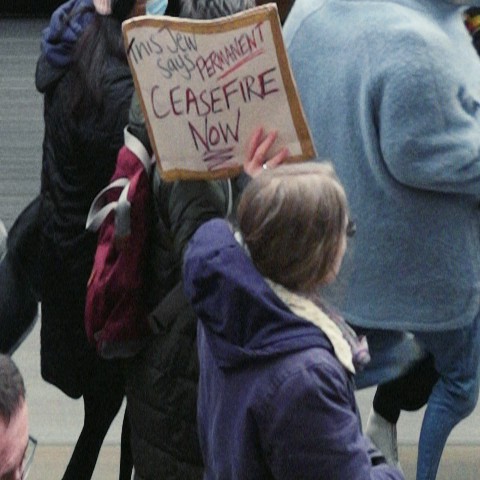 THIS JEW
SAYS PERMANENT
CEASEFIRE
NOW